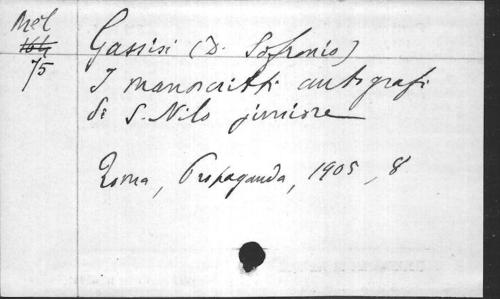 Mél
164
75
Gassisi (D. Sofronio)
I manoscritti autografi
di S. Nilo juniore
Roma, Propaganda, 1905, 8